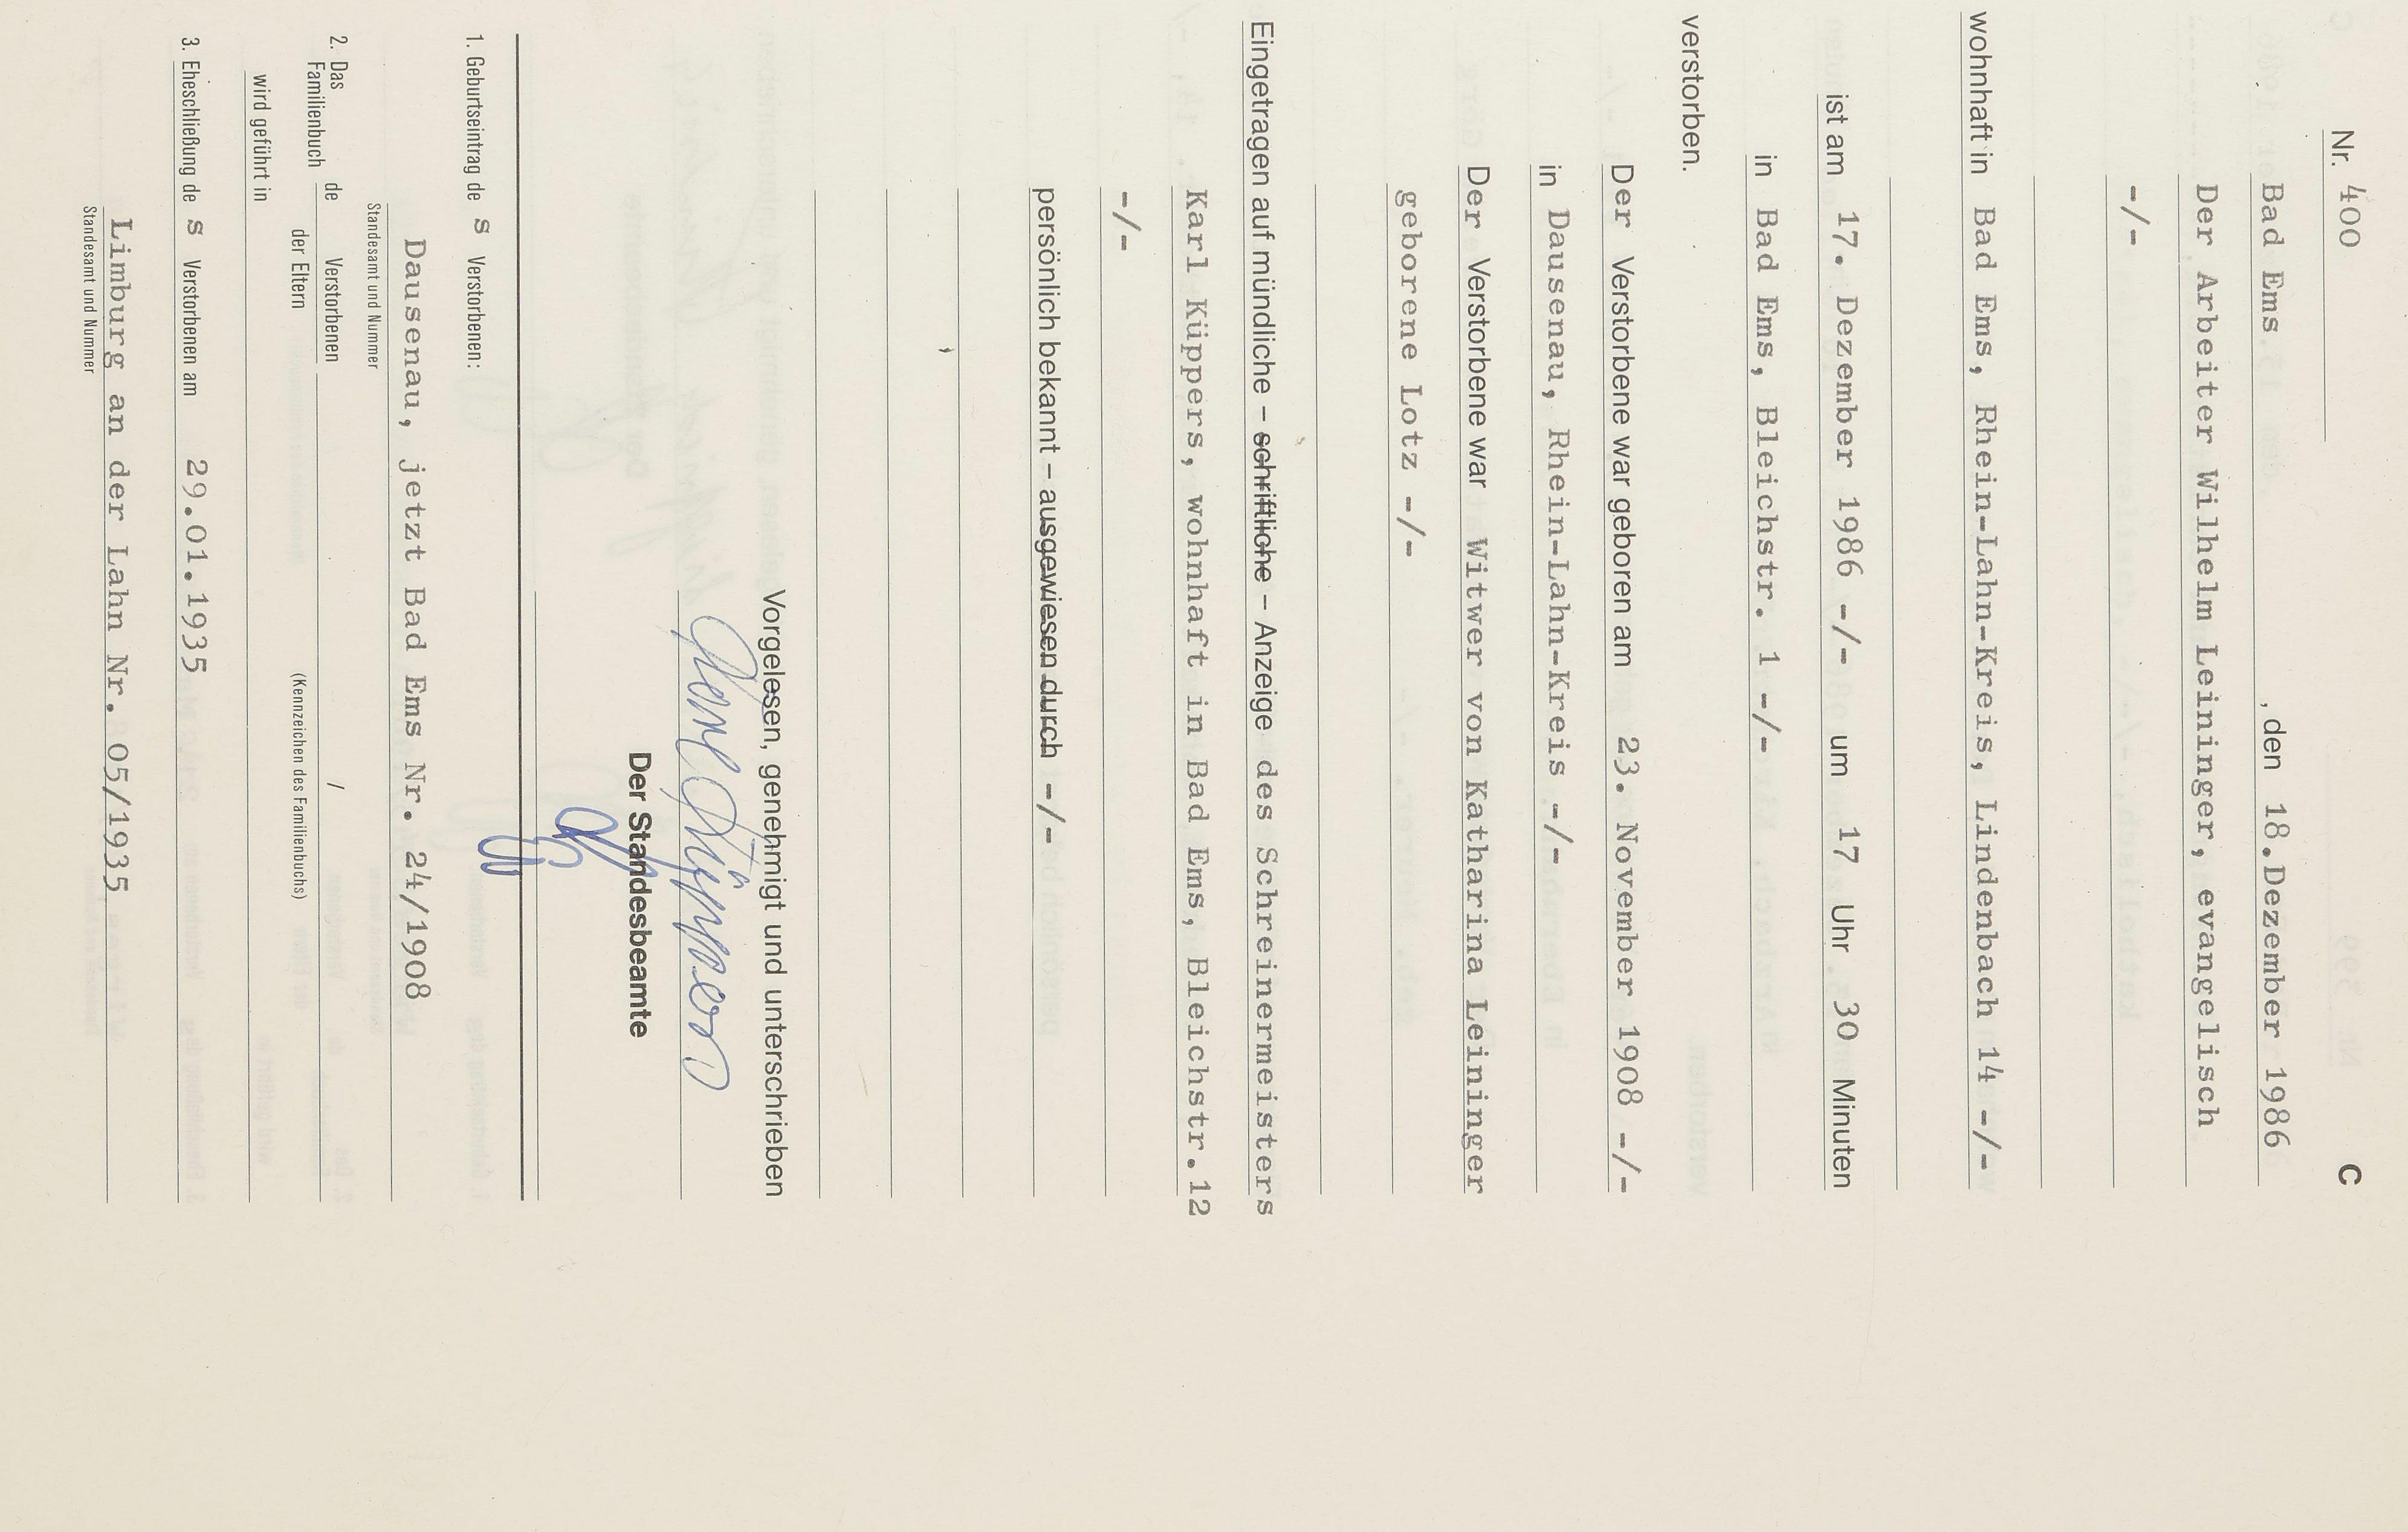 Nr. 400 C
Bad Ems , den 18.Dezember 1986
Der Arbeiter Wilhelm Leininger, evangelisch
-/-
wohnhaft in Bad Ems, Rhein-Lahn-Kreis, Lindenbach 14 -/-
ist am 17. Dezember 1986 -/- um 17 Uhr 30 Minuten
in Bad Ems, Bleichstr. 1 -/-
verstorben.
Der Verstorbene war geboren am 23. November 1908 -/-
in Dausenau, Rhein-Lahn-Kreis -/-
Der Verstorbene war Witwer von Katharina Leininger
geborene Lotz -/-
Eingetragen auf mündliche – schriftliche – Anzeige des Schreinermeisters
Karl Küppers, wohnhaft in Bad Ems, Bleichstr.12
-/-
persönlich bekannt – ausgewiesen durch -/-
Vorgelesen, genehmigt und unterschrieben
Karl Küppers
Der Standesbeamte
1. Geburtseintrag de s Verstorbenen:
Dausenau, jetzt Bad Ems Nr. 24/1908
Standesamt und Nummer
2. Das Familienbuch de Verstorbenen /
der Eltern (Kennzeichen des Familienbuchs)
wird geführt in
3. Eheschließung de s Verstorbenen am 29.01.1935
Limburg an der Lahn Nr. 05/1935
Standesamt und Nummer